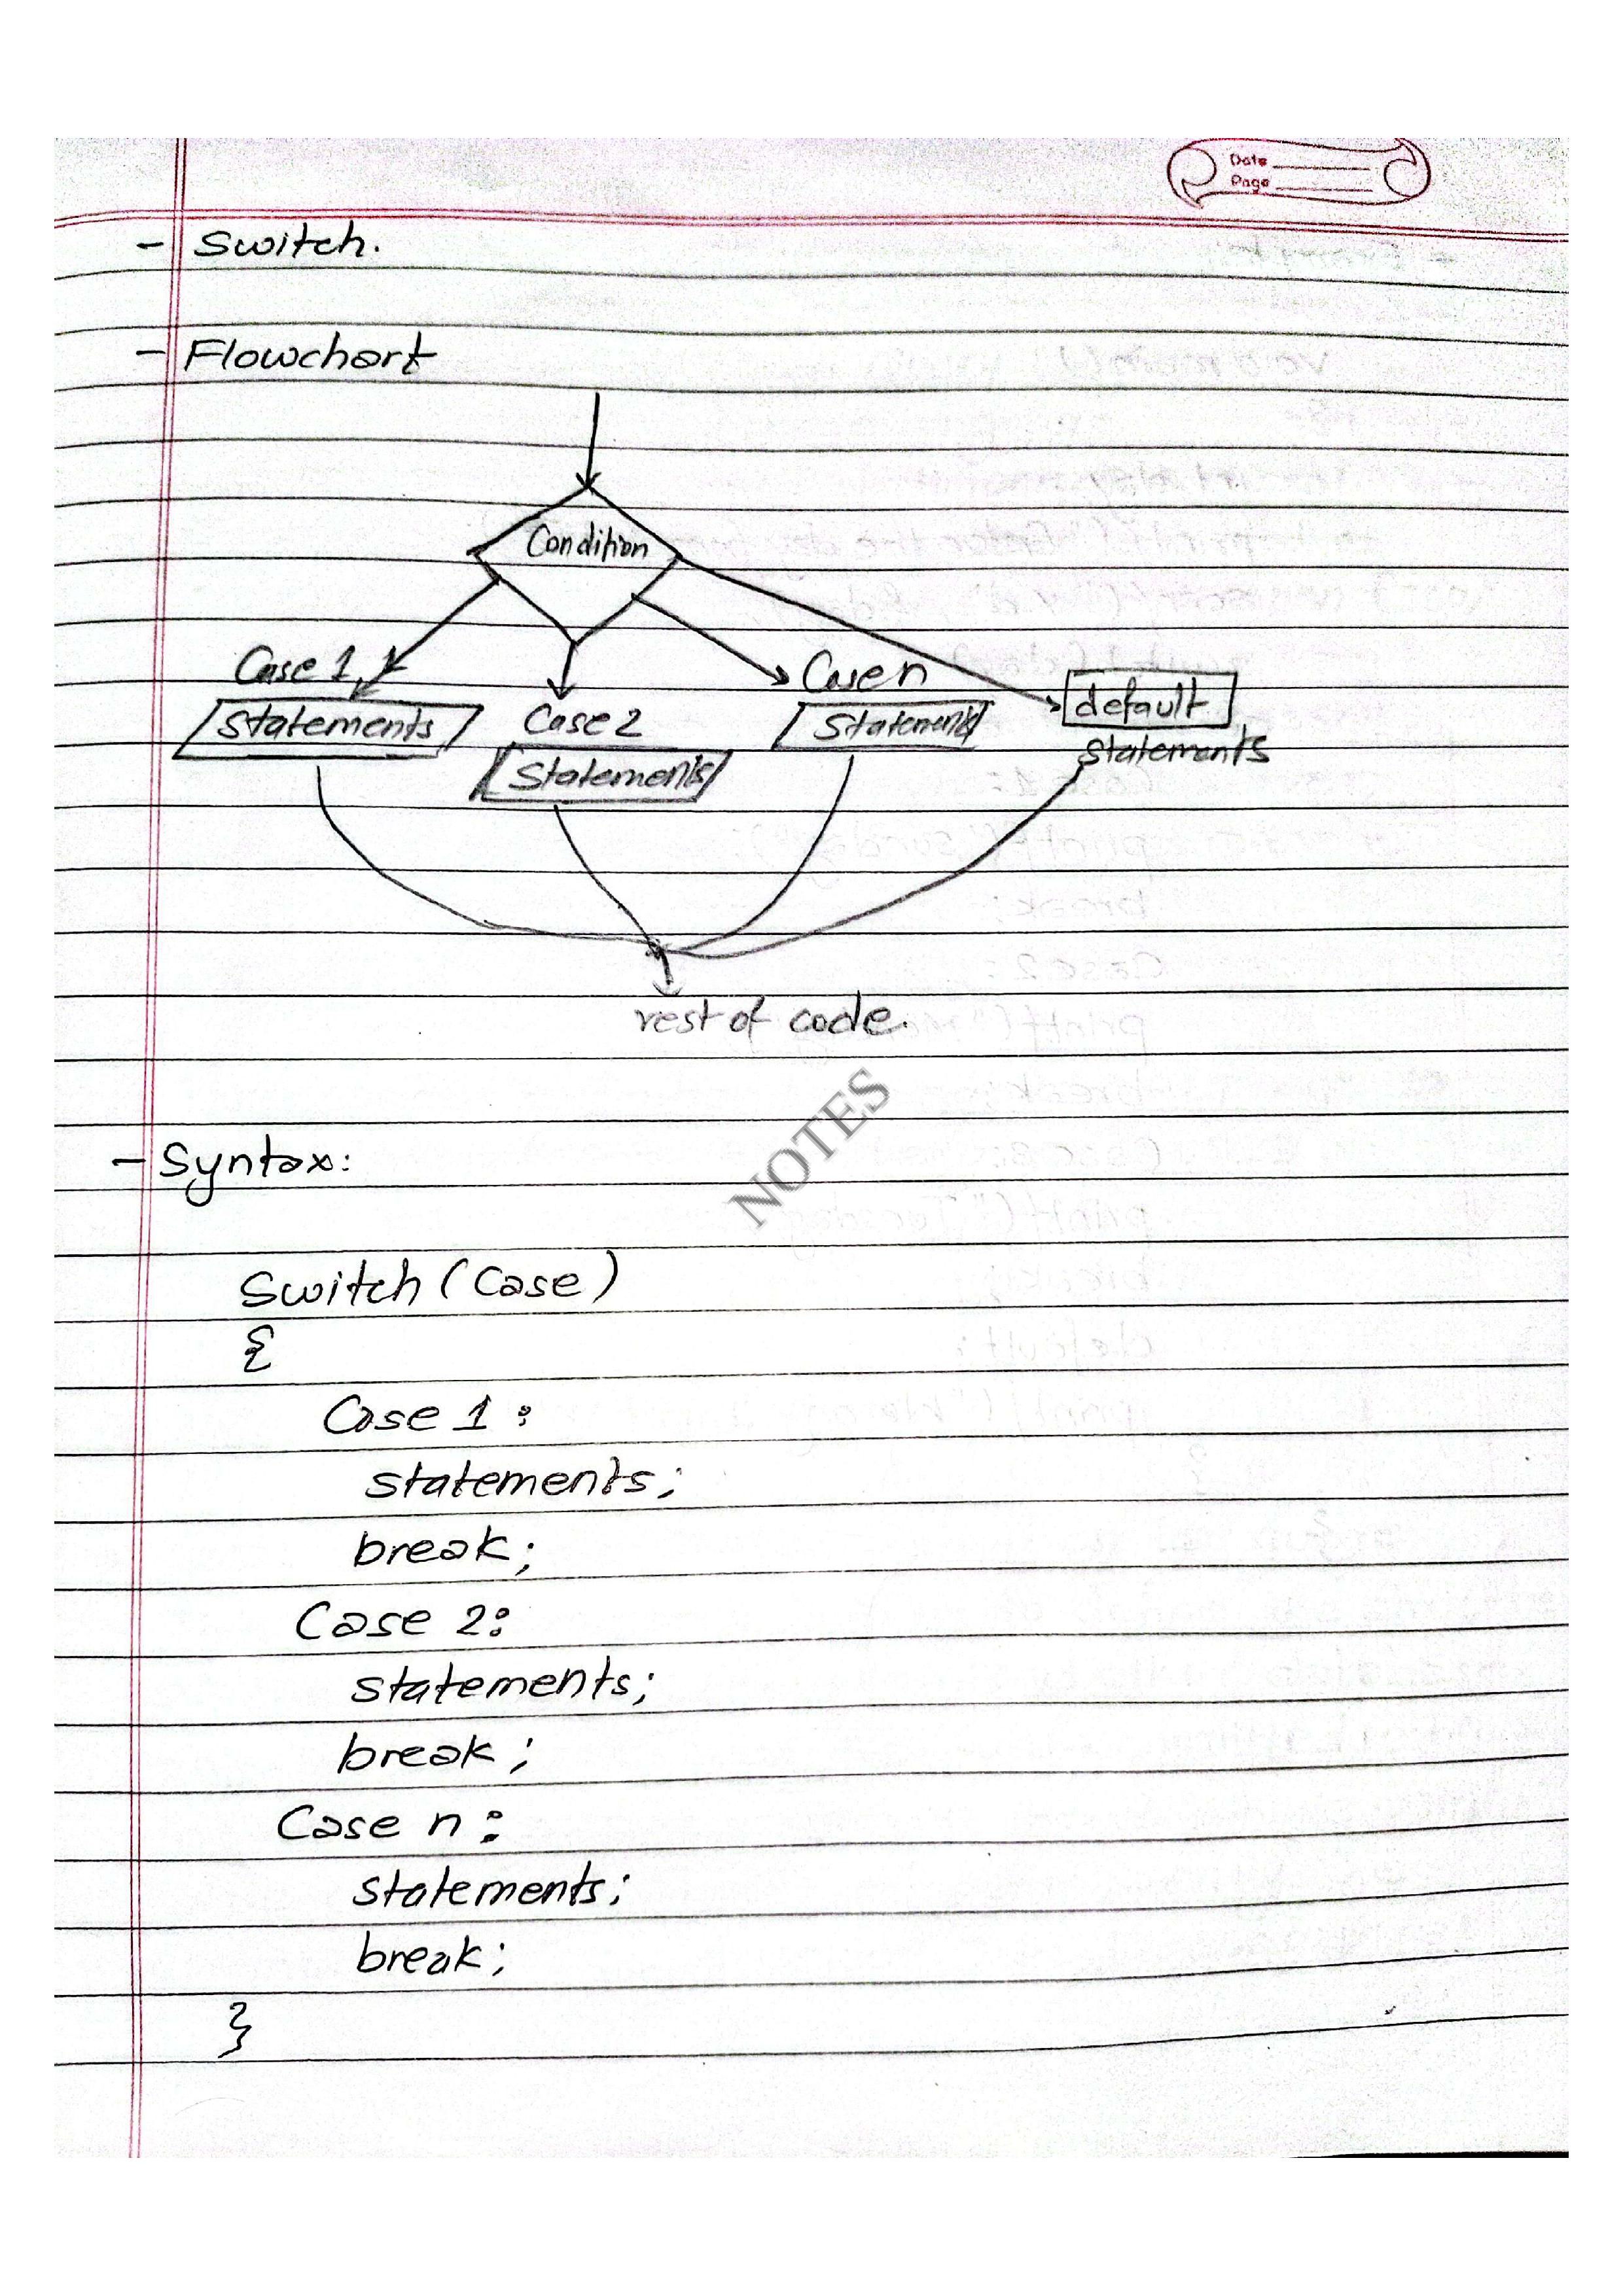 Date
Page
- Switch.
- Flowchart
Condition
Case 1
Statements
Case 2
Statements
Case n
Statements
default
statements
rest of code.
NOTES
- Syntax:
Switch (Case)
{
Case 1 :
statements;
break;
Case 2:
statements;
break ;
Case n :
statements;
break;
}